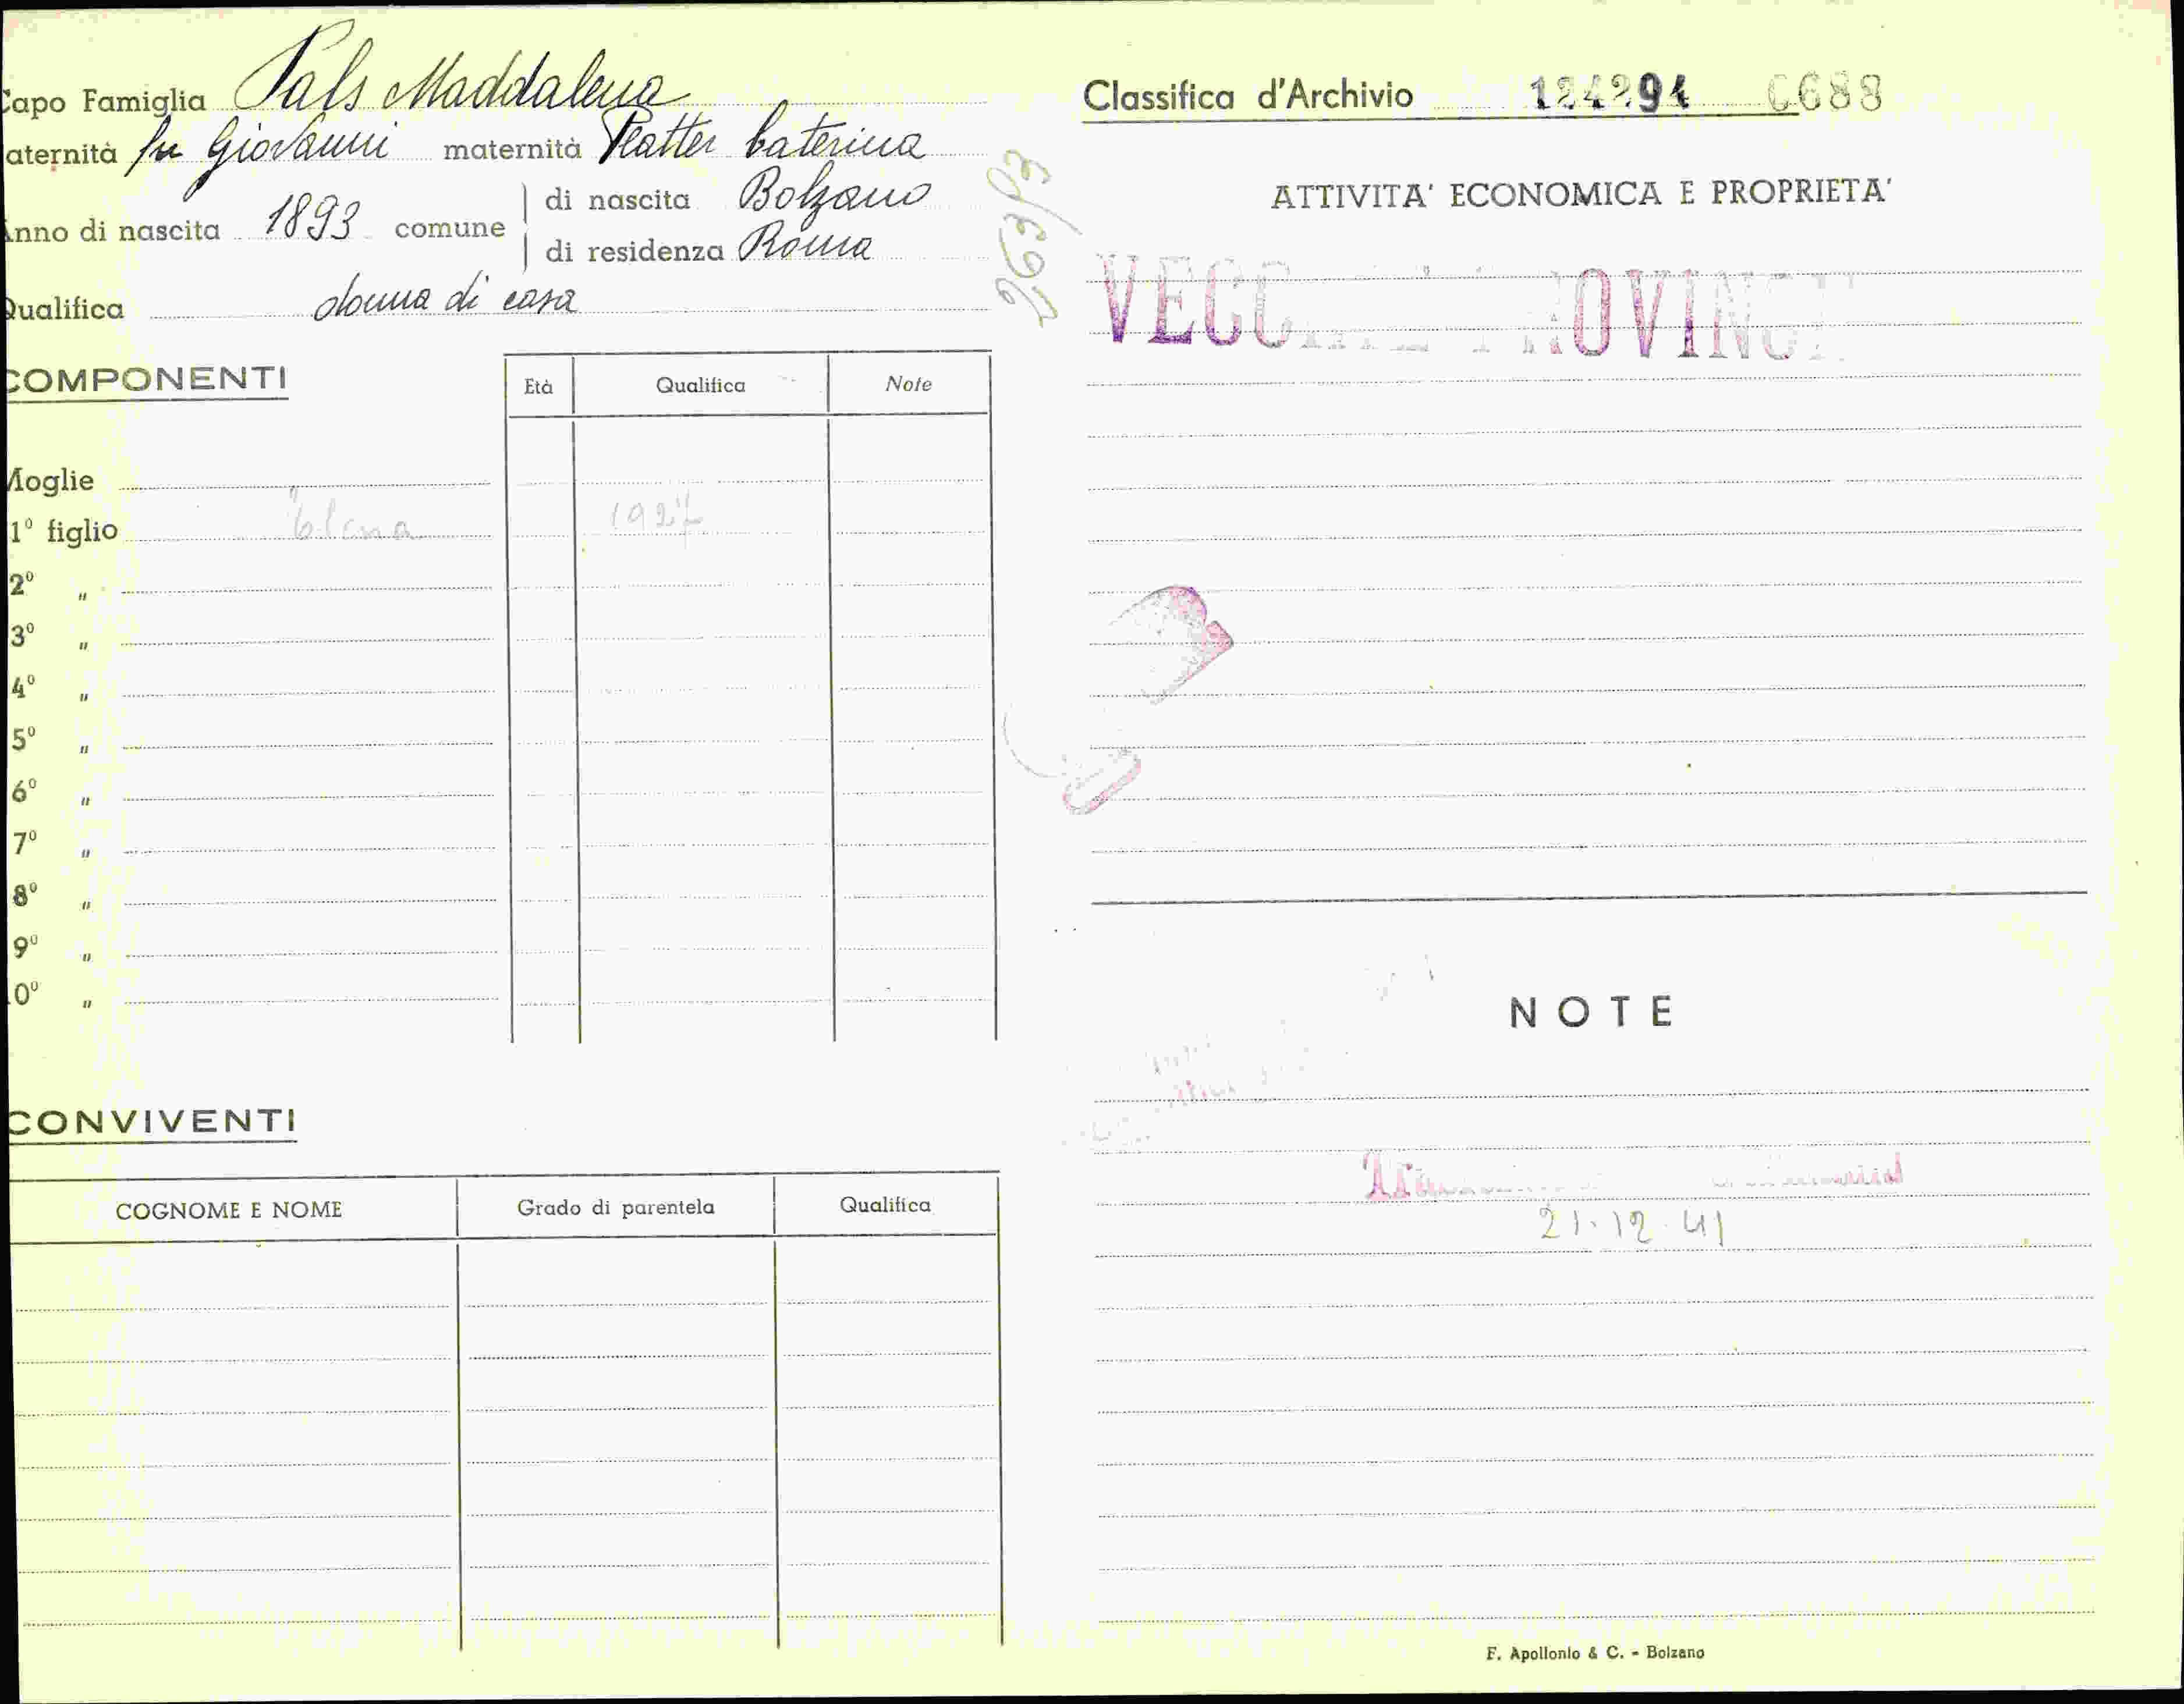 Capo Famiglia Pals Maddalena
aternità fu Giovanni maternità Platter Caterina
Anno di nascita 1893 comune di nascita Bolzano
di residenza Roma
Qualifica donna di casa
COMPONENTI
Età Qualifica Note
Moglie
1º figlio Elena 1927
2º "
3º "
4º "
5º "
6º "
7º "
8º "
9º "
10º "
CONVIVENTI
COGNOME E NOME Grado di parentela Qualifica
Classifica d'Archivio 124294 0688
ATTIVITA' ECONOMICA E PROPRIETA'
NOTE
21.12.41
F. Apollonio & C. - Bolzano